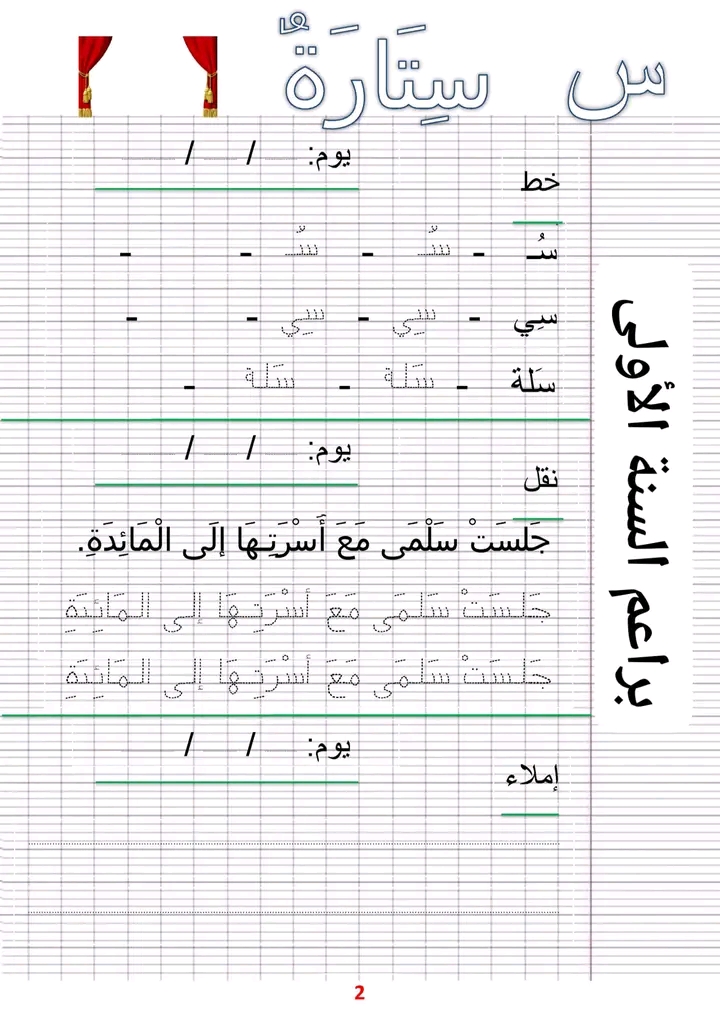 س سِتَارَةٌ
يوم: / /
خط
سُـ - سُـ - سُـ - -
سِي - سِي - سِي - -
سَلة - سَلة - سَلة -
يوم: / /
نقل
جَلسَتْ سَلْمَى مَعَ أَسْرَتِـهَا إلَى الْمَائِدَةِ.
جَلـسَتْ سَلـمَى مَعَ أسْرَتِـهَا إلـى الـمَائِـدَةِ
جَلـسَتْ سَلـمَى مَعَ أسْرَتِـهَا إلـى الـمَائِـدَةِ
يوم: / /
إملاء
براعم السنة الأولى
2